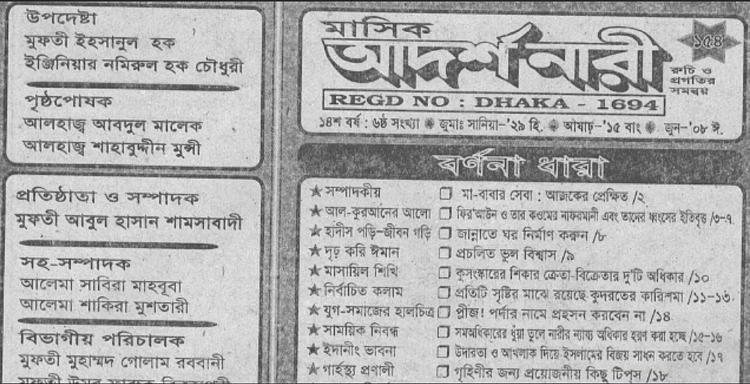 উপদেষ্টা
মুফতী ইহসানুল হক
ইঞ্জিনিয়ার নমিরুল হক চৌধুরী
পৃষ্ঠপোষক
আলহাজ্ব আবদুল মালেক
আলহাজ্ব শাহাবুদ্দীন মুন্সী
প্রতিষ্ঠাতা ও সম্পাদক
মুফতী আবুল হাসান শামসাবাদী
সহ-সম্পাদক
আলেমা সাবিরা মাহবুবা
আলেমা শাকিরা মুশতারী
বিভাগীয় পরিচালক
মুফতী মুহাম্মদ গোলাম রববানী
মাসিক
আদর্শ নারী
১৫৪
রুচি ও
প্রগতির
সমন্বয়
REGD NO : DHAKA - 1694
১৪শ বর্ষ : ৬ষ্ঠ সংখ্যা জুমাঃ সানিয়া-'২৯ হি. আষাঢ়-'১৫ বাং জুন-'০৮ ঈ.
বর্ণনা ধারা
★ সম্পাদকীয় ❐ মা-বাবার সেবা : আজকের প্রেক্ষিত /২
★ আল-কুরআনের আলো ❐ ফির'আউন ও তার কওমের নাফরমানী এবং তাদের ধ্বংসের ইতিবৃত্ত /৩-৭
★ হাদীস পড়ি-জীবন গড়ি ❐ জান্নাতে ঘর নির্মাণ করুন /৮
★ দৃঢ় করি ঈমান ❐ প্রচলিত ভুল বিশ্বাস /৯
★ মাসায়িল শিখি ❐ কুসংস্কারের শিকার ক্রেতা-বিক্রেতার দু'টি অধিকার /১০
★ নির্বাচিত কলাম ❐ প্রতিটি সৃষ্টির মাঝে রয়েছে কুদরতের কারিশমা /১১-১৩
★ যুগ-সমাজের হালচিত্র ❐ প্লীজ! পর্দার নামে প্রহসন করবেন না /১৪
★ সাময়িক নিবন্ধ ❐ সমঅধিকারের ধুঁয়া তুলে নারীর ন্যায্য অধিকার হরণ করা হচ্ছে /১৫-১৬
★ ইদানীং ভাবনা ❐ উদারতা ও আখলাক দিয়ে ইসলামের বিজয় সাধন করতে হবে /১৭
★ গার্হস্থ্য প্রণালী ❐ গৃহিণীর জন্য প্রয়োজনীয় কিছু টিপস /১৮